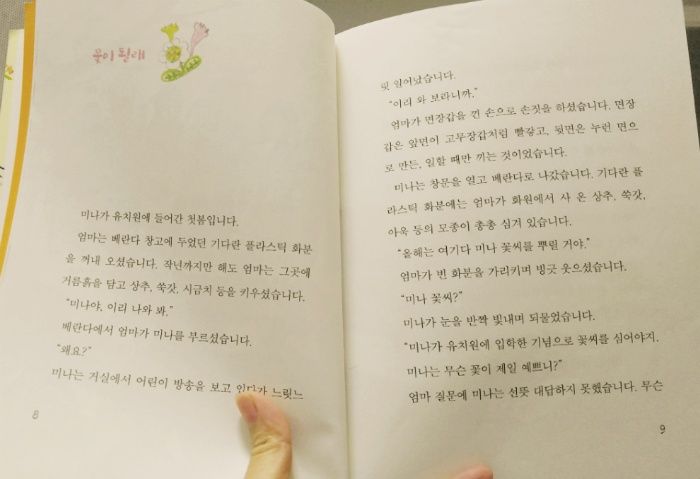 꽃이 될래
미나가 유치원에 들어간 첫봄입니다.
엄마는 베란다 창고에 두었던 기다란 플라스틱 화분
을 꺼내 오셨습니다. 작년까지만 해도 엄마는 그곳에
거름흙을 담고 상추, 쑥갓, 시금치 등을 키우셨습니다.
“미나야, 이리 나와 봐.”
베란다에서 엄마가 미나를 부르셨습니다.
“왜요?”
미나는 거실에서 어린이 방송을 보고 있다가 느릿느
8
릿 일어났습니다.
“이리 와 보라니까.”
엄마가 면장갑을 낀 손으로 손짓을 하셨습니다. 면장
갑은 앞면이 고무장갑처럼 빨갛고, 뒷면은 누런 면으
로 만든, 일할 때만 끼는 것이었습니다.
미나는 창문을 열고 베란다로 나갔습니다. 기다란 플
라스틱 화분에는 엄마가 화원에서 사 온 상추, 쑥갓,
아욱 등의 모종이 총총 심겨 있습니다.
“올해는 여기다 미나 꽃씨를 뿌릴 거야.”
엄마가 빈 화분을 가리키며 빙긋 웃으셨습니다.
“미나 꽃씨?”
미나가 눈을 반짝 빛내며 되물었습니다.
“미나가 유치원에 입학한 기념으로 꽃씨를 심어야지.
미나는 무슨 꽃이 제일 예쁘니?”
엄마 질문에 미나는 선뜻 대답하지 못했습니다. 무슨
9